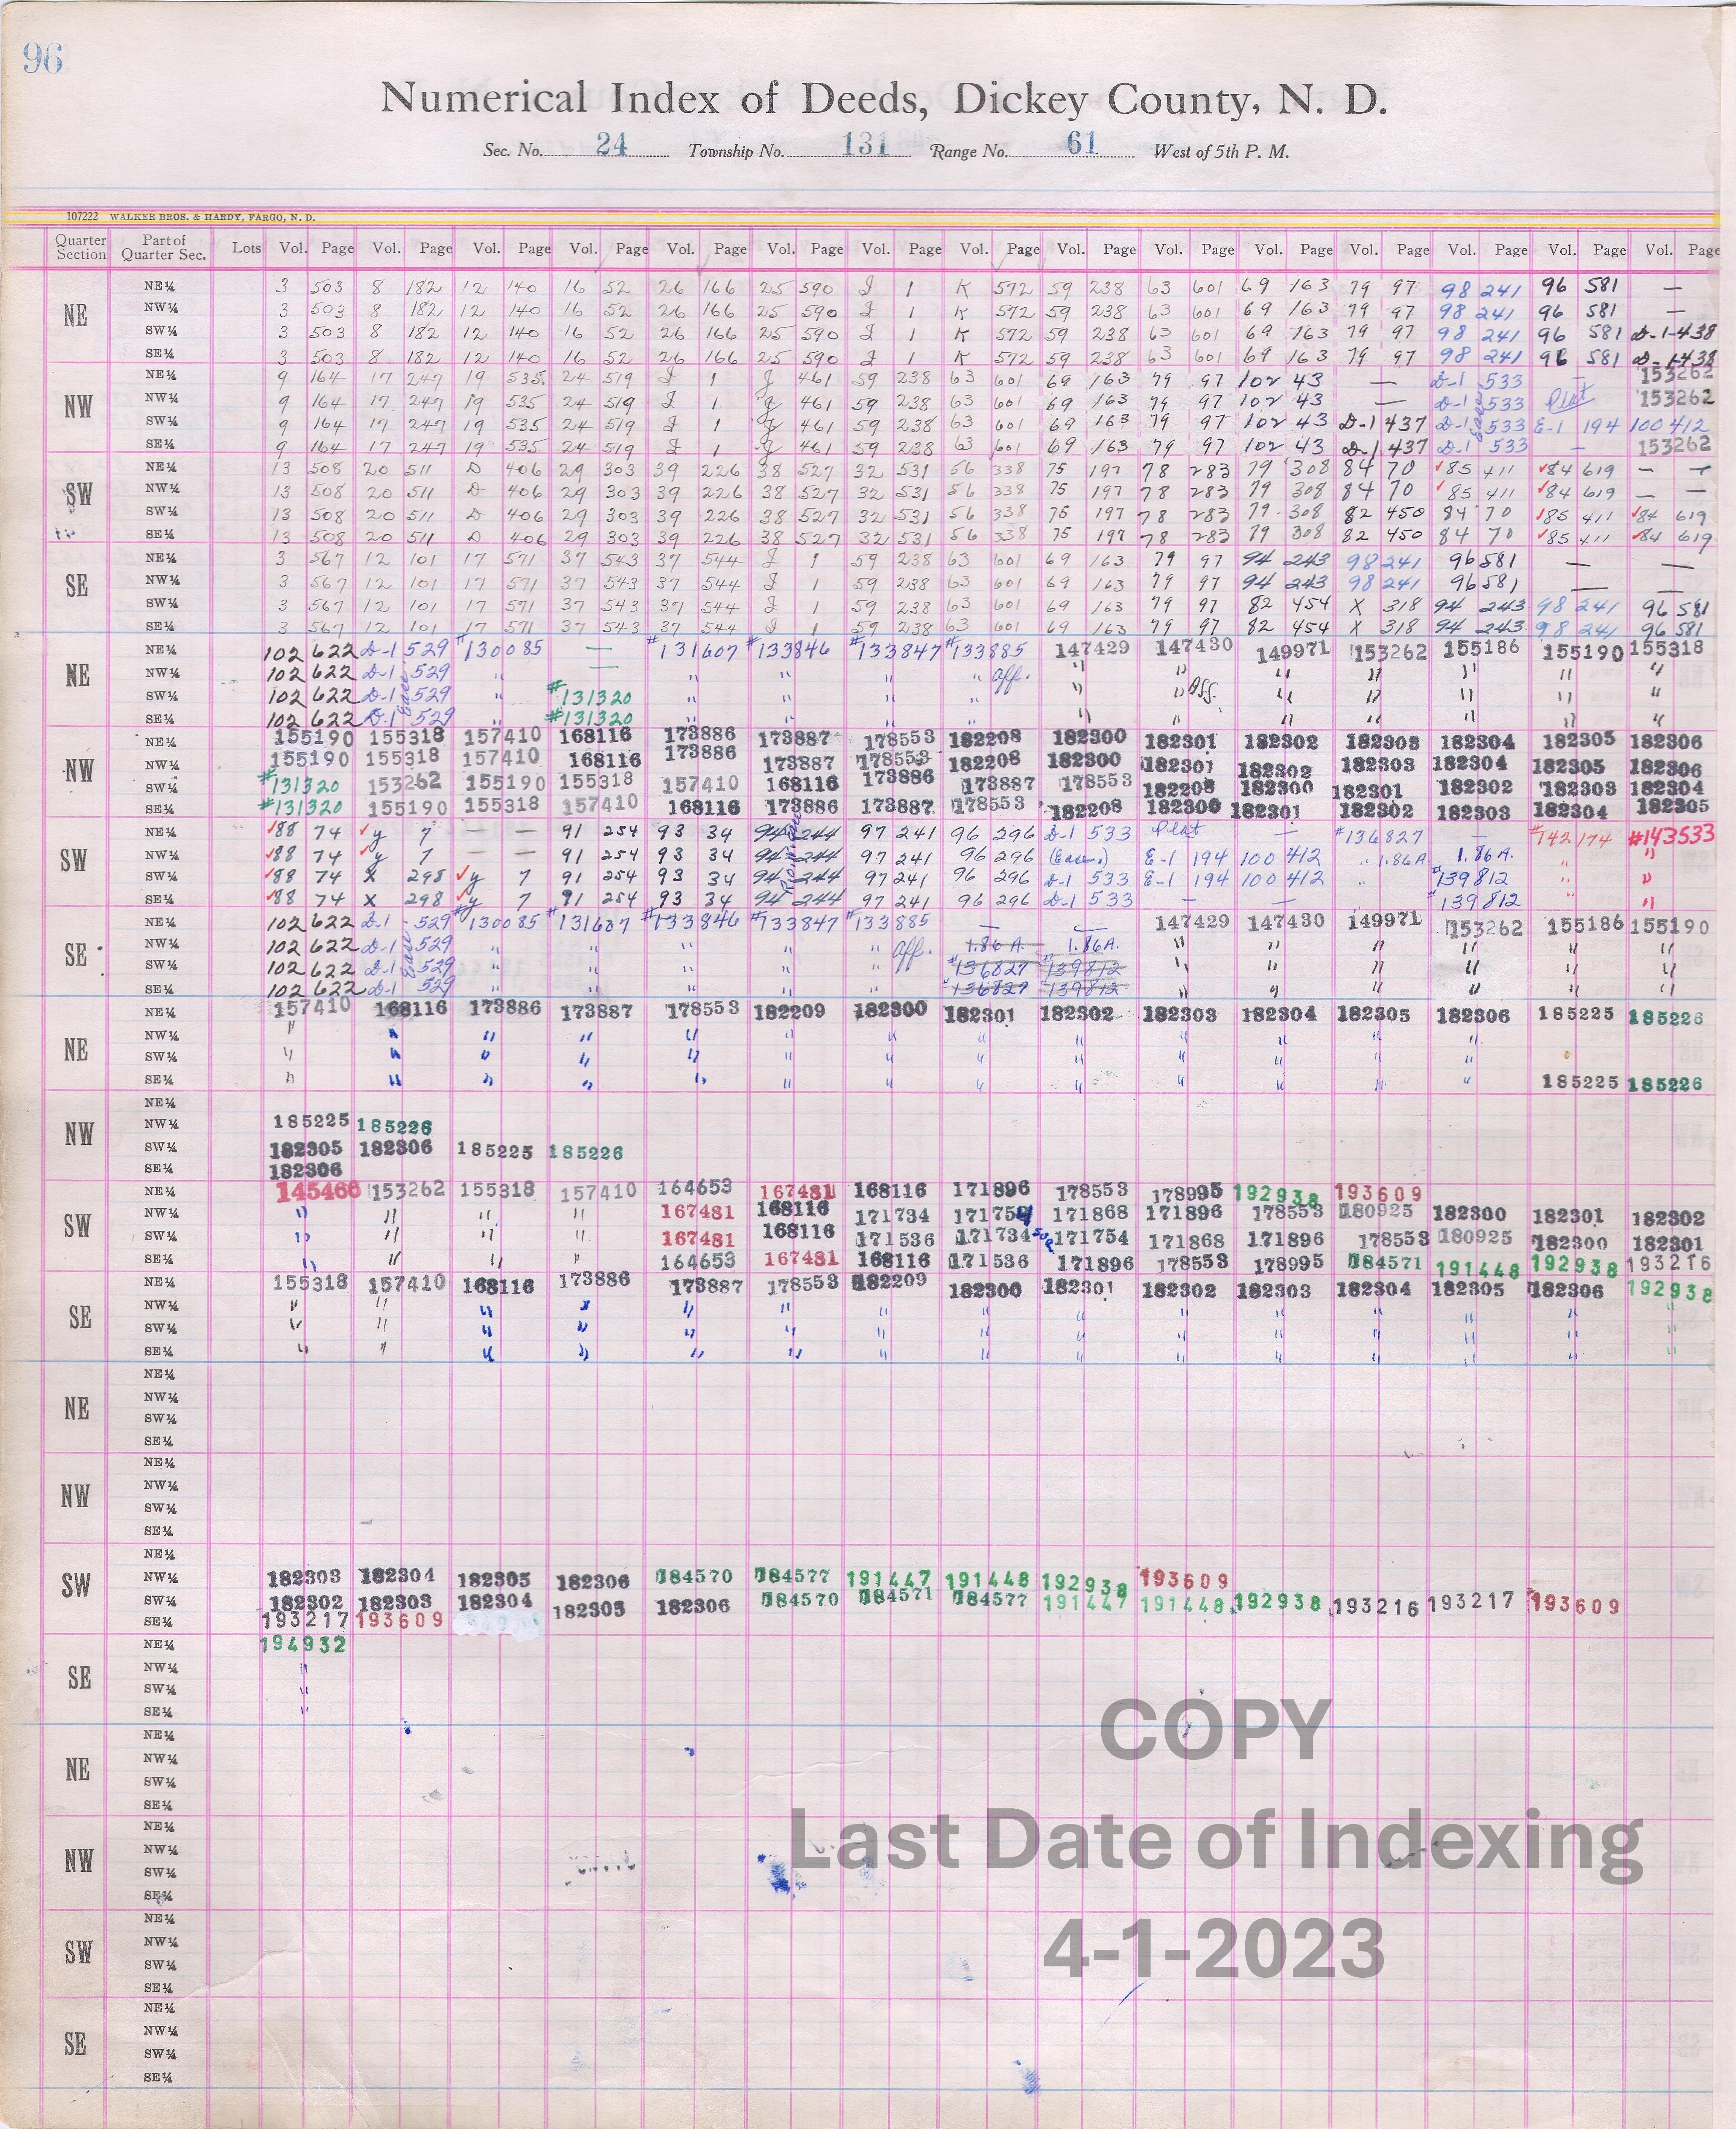 96
Numerical Index of Deeds, Dickey County, N. D.
Sec. No. 24 Township No. 131 Range No. 61 West of 5th P. M.
107222 WALKER BROS. & HARDY, FARGO, N. D.
Quarter Section Part of Quarter Sec. Lots Vol. Page Vol. Page Vol. Page Vol. Page Vol. Page Vol. Page Vol. Page Vol. Page Vol. Page Vol. Page Vol. Page Vol. Page Vol. Page Vol. Page Vol. Page
NE
NE¼ 3 503 8 182 12 140 16 52 26 166 25 590 I 1 K 572 59 238 63 601 69 163 79 97 98 241 96 581 —
NW¼ 3 503 8 182 12 140 16 52 26 166 25 590 I 1 K 572 59 238 63 601 69 163 79 97 98 241 96 581 —
SW¼ 3 503 8 182 12 140 16 52 26 166 25 590 I 1 K 572 59 238 63 601 69 163 79 97 98 241 96 581 D-1-438
SE¼ 3 503 8 182 12 140 16 52 26 166 25 590 I 1 K 572 59 238 63 601 69 163 79 97 98 241 96 581 D-1-438
NW
NE¼ 9 164 17 247 19 535 24 519 I 1 J 461 59 238 63 601 69 163 79 97 102 43 — D-1 533 — 153262
NW¼ 9 164 17 247 19 535 24 519 I 1 J 461 59 238 63 601 69 163 79 97 102 43 — D-1 533 Plat 153262
SW¼ 9 164 17 247 19 535 24 519 I 1 J 461 59 238 63 601 69 163 79 97 102 43 D-1 437 D-1 533 E-1 194 100 412
SE¼ 9 164 17 247 19 535 24 519 I 1 J 461 59 238 63 601 69 163 79 97 102 43 D-1 437 D-1 533 — 153262
SW
NE¼ 13 508 20 511 D 406 29 303 39 226 38 527 32 531 56 338 75 197 78 283 79 308 84 70 ✓85 411 ✓84 619 — —
NW¼ 13 508 20 511 D 406 29 303 39 226 38 527 32 531 56 338 75 197 78 283 79 308 84 70 ✓85 411 ✓84 619 — —
SW¼ 13 508 20 511 D 406 29 303 39 226 38 527 32 531 56 338 75 197 78 283 79 308 82 450 84 70 ✓85 411 ✓84 619
SE¼ 13 508 20 511 D 406 29 303 39 226 38 527 32 531 56 338 75 197 78 283 79 308 82 450 84 70 ✓85 411 ✓84 619
SE
NE¼ 3 567 12 101 17 571 37 543 37 544 I 1 59 238 63 601 69 163 79 97 94 243 98 241 96 581 — —
NW¼ 3 567 12 101 17 571 37 543 37 544 I 1 59 238 63 601 69 163 79 97 94 243 98 241 96 581 — —
SW¼ 3 567 12 101 17 571 37 543 37 544 I 1 59 238 63 601 69 163 79 97 82 454 X 318 94 243 98 241 96 581
SE¼ 3 567 12 101 17 571 37 543 37 544 I 1 59 238 63 601 69 163 79 97 82 454 X 318 94 243 98 241 96 581
NE
NE¼ 102 622 D-1 529 #130085 — #131607 #133846 #133847 #133885 147429 147430 149971 153262 155186 155190 155318
NW¼ 102 622 D-1 529 " " " " " Aff. " " " " " " "
SW¼ 102 622 D-1 529 " #131320 " " " " " " Aff. " " " " "
SE¼ 102 622 D-1 529 " #131320 " " " " " " " " " " "
NW
NE¼ 155190 155318 157410 168116 173886 173887 178553 182208 182300 182301 182302 182303 182304 182305 182306
NW¼ 155190 155318 157410 168116 173886 173887 178553 182208 182300 182301 182302 182303 182304 182305 182306
SW¼ #131320 153262 155190 155318 157410 168116 173886 173887 178553 182208 182300 182301 182302 182303 182304
SE¼ #131320 155190 155318 157410 168116 173886 173887 178553 182208 182300 182301 182302 182303 182304 182305
SW
NE¼ ✓88 74 ✓y 7 — — 91 254 93 34 94 244 97 241 96 296 D-1 533 Plat — #136827 — #142174 #143533
NW¼ ✓88 74 ✓y 7 — — 91 254 93 34 94 244 97 241 96 296 (Ease.) E-1 194 100 412 " 1.86A. 1.86A. " "
SW¼ ✓88 74 X 298 ✓y 7 91 254 93 34 94 244 97 241 96 296 D-1 533 E-1 194 100 412 " #139812 " "
SE¼ ✓88 74 X 298 ✓y 7 91 254 93 34 94 244 97 241 96 296 D-1 533 — — " #139812 " "
SE
NE¼ 102 622 D-1 529 #130085 #131607 #133846 #133847 #133885 — — 147429 147430 149971 153262 155186 155190
NW¼ 102 622 D-1 529 " " " " " Aff. 1.86 A. 1.86A. " " " " " "
SW¼ 102 622 D-1 529 " " " " " #136827 #139812 " " " " " "
SE¼ 102 622 D-1 529 " " " " " #136827 #139812 " " " " " "
NE
NE¼ 157410 168116 173886 173887 178553 182209 182300 182301 182302 182303 182304 182305 182306 185225 185226
NW¼ " " " " " " " " " " " " "
SW¼ " " " " " " " " " " " " "
SE¼ " " " " " " " " " " " " " 185225 185226
NW
NE¼
NW¼ 185225 185226
SW¼ 182305 182306 185225 185226
SE¼ 182306
SW
NE¼ 145466 153262 155318 157410 164653 167481 168116 171896 178553 178995 192938 193609
NW¼ " " " " 167481 168116 171734 171754 171868 171896 178553 180925 182300 182301 182302
SW¼ " " " " 167481 168116 171536 171734 171754 171868 171896 178553 180925 182300 182301
SE¼ " " " " 164653 167481 168116 171536 171896 178553 178995 184571 191448 192938 193216
SE
NE¼ 155318 157410 168116 173886 173887 178553 182209 182300 182301 182302 182303 182304 182305 182306 192938
NW¼ " " " " " " " " " " " " " " "
SW¼ " " " " " " " " " " " " " " "
SE¼ " " " " " " " " " " " " " " "
NE
NE¼
NW¼
SW¼
SE¼
NW
NE¼
NW¼
SW¼
SE¼
SW
NE¼
NW¼ 182303 182304 182305 182306 184570 184577 191447 191448 192938 193609
SW¼ 182302 182303 182304 182305 182306 184570 184571 184577 191447 191448 192938 193216 193217 193609
SE¼ 193217 193609
SE
NE¼ 194932
NW¼ "
SW¼ "
SE¼ "
NE
NE¼
NW¼
SW¼
SE¼
NW
NE¼
NW¼
SW¼
SE¼
SW
NE¼
NW¼
SW¼
SE¼
SE
NE¼
NW¼
SW¼
SE¼
COPY
Last Date of Indexing
4-1-2023